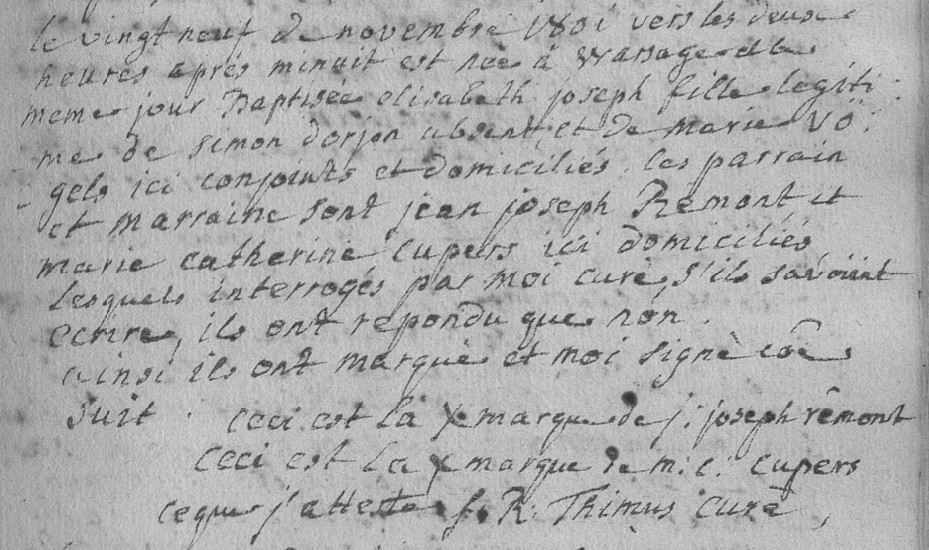 le vingt neuf de novembre 1801 vers les deux
heures après minuit est née à Warsage et le
meme jour Baptisée elisabeth joseph fille legiti:
me de simon dorjon absent et de marie Vö:
gels ici conjoints et domiciliés. les parrain
et marraine sont jean joseph Remont et
marie catherine Cupers ici domiciliés
Lesquels interrogés par moi curé, s'ils savoient
ecrire, ils ont repondu que nón.
ainsi ils ont marqué et moi signé côe
suit. ceci est la x marque de j: joseph rêmont
ceci est la x marque de m: c: cupers
ceque j'atteste f. R. Thimus curé,